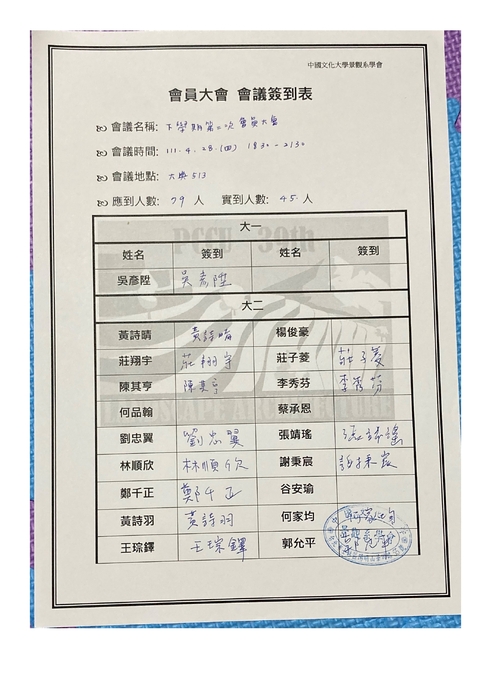 中國文化大學景觀系學會
會員大會 會議簽到表
會議名稱: 下學期第二次會員大會
會議時間: 111.4.28.(四) 1830-2130
會議地點: 大典513
應到人數: 79 人 實到人數: 45 人
大一
姓名 簽到 姓名 簽到
吳彥陞 吳彥陞
大二
黃詩晴 黃詩晴 楊俊豪
莊翔宇 莊翔宇 莊子菱 莊子菱
陳其亨 陳其亨 李秀芬 李秀芬
何品翰 蔡承恩
劉忠翼 劉忠翼 張靖瑤 張靖瑤
林順欣 林順欣 謝秉宸 謝秉宸
鄭千正 鄭千正 谷安瑜
黃詩羽 黃詩羽 何家均 何家均
王琮鐸 王琮鐸 郭允平
PCCU 39th